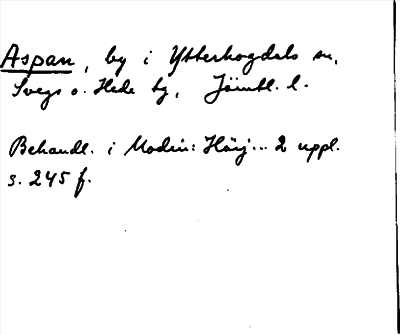 Aspan, by i Ytterhogdals sn,
Svegs o. Hede tg, Jämtl. l.
Behandl. i Modin: Härj... 2 uppl.
s. 245 f.